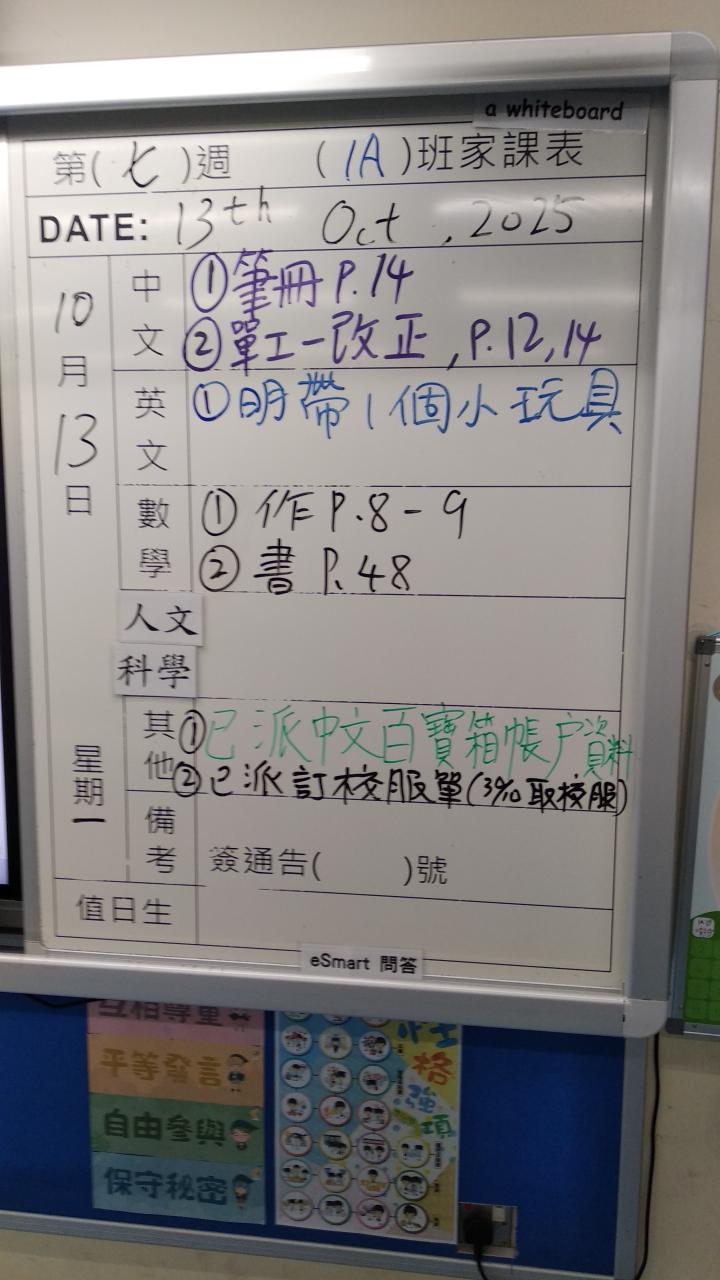 a whiteboard
第(七)週 (1A)班家課表
DATE: 13th Oct, 2025
10月13日
星期一
中文
①筆冊 P.14
②單工一改正, P.12,14
英文
①明帶1個小玩具
數學
①作 P.8-9
②書 P.48
人文
科學
其他
①已派中文百寶箱帳户資料
②已派訂校服單(3/10取校服)
備考
簽通告( )號
值日生
eSmart 問答
互相尊重
平等發言
自由參與
保守秘密
格
強
項